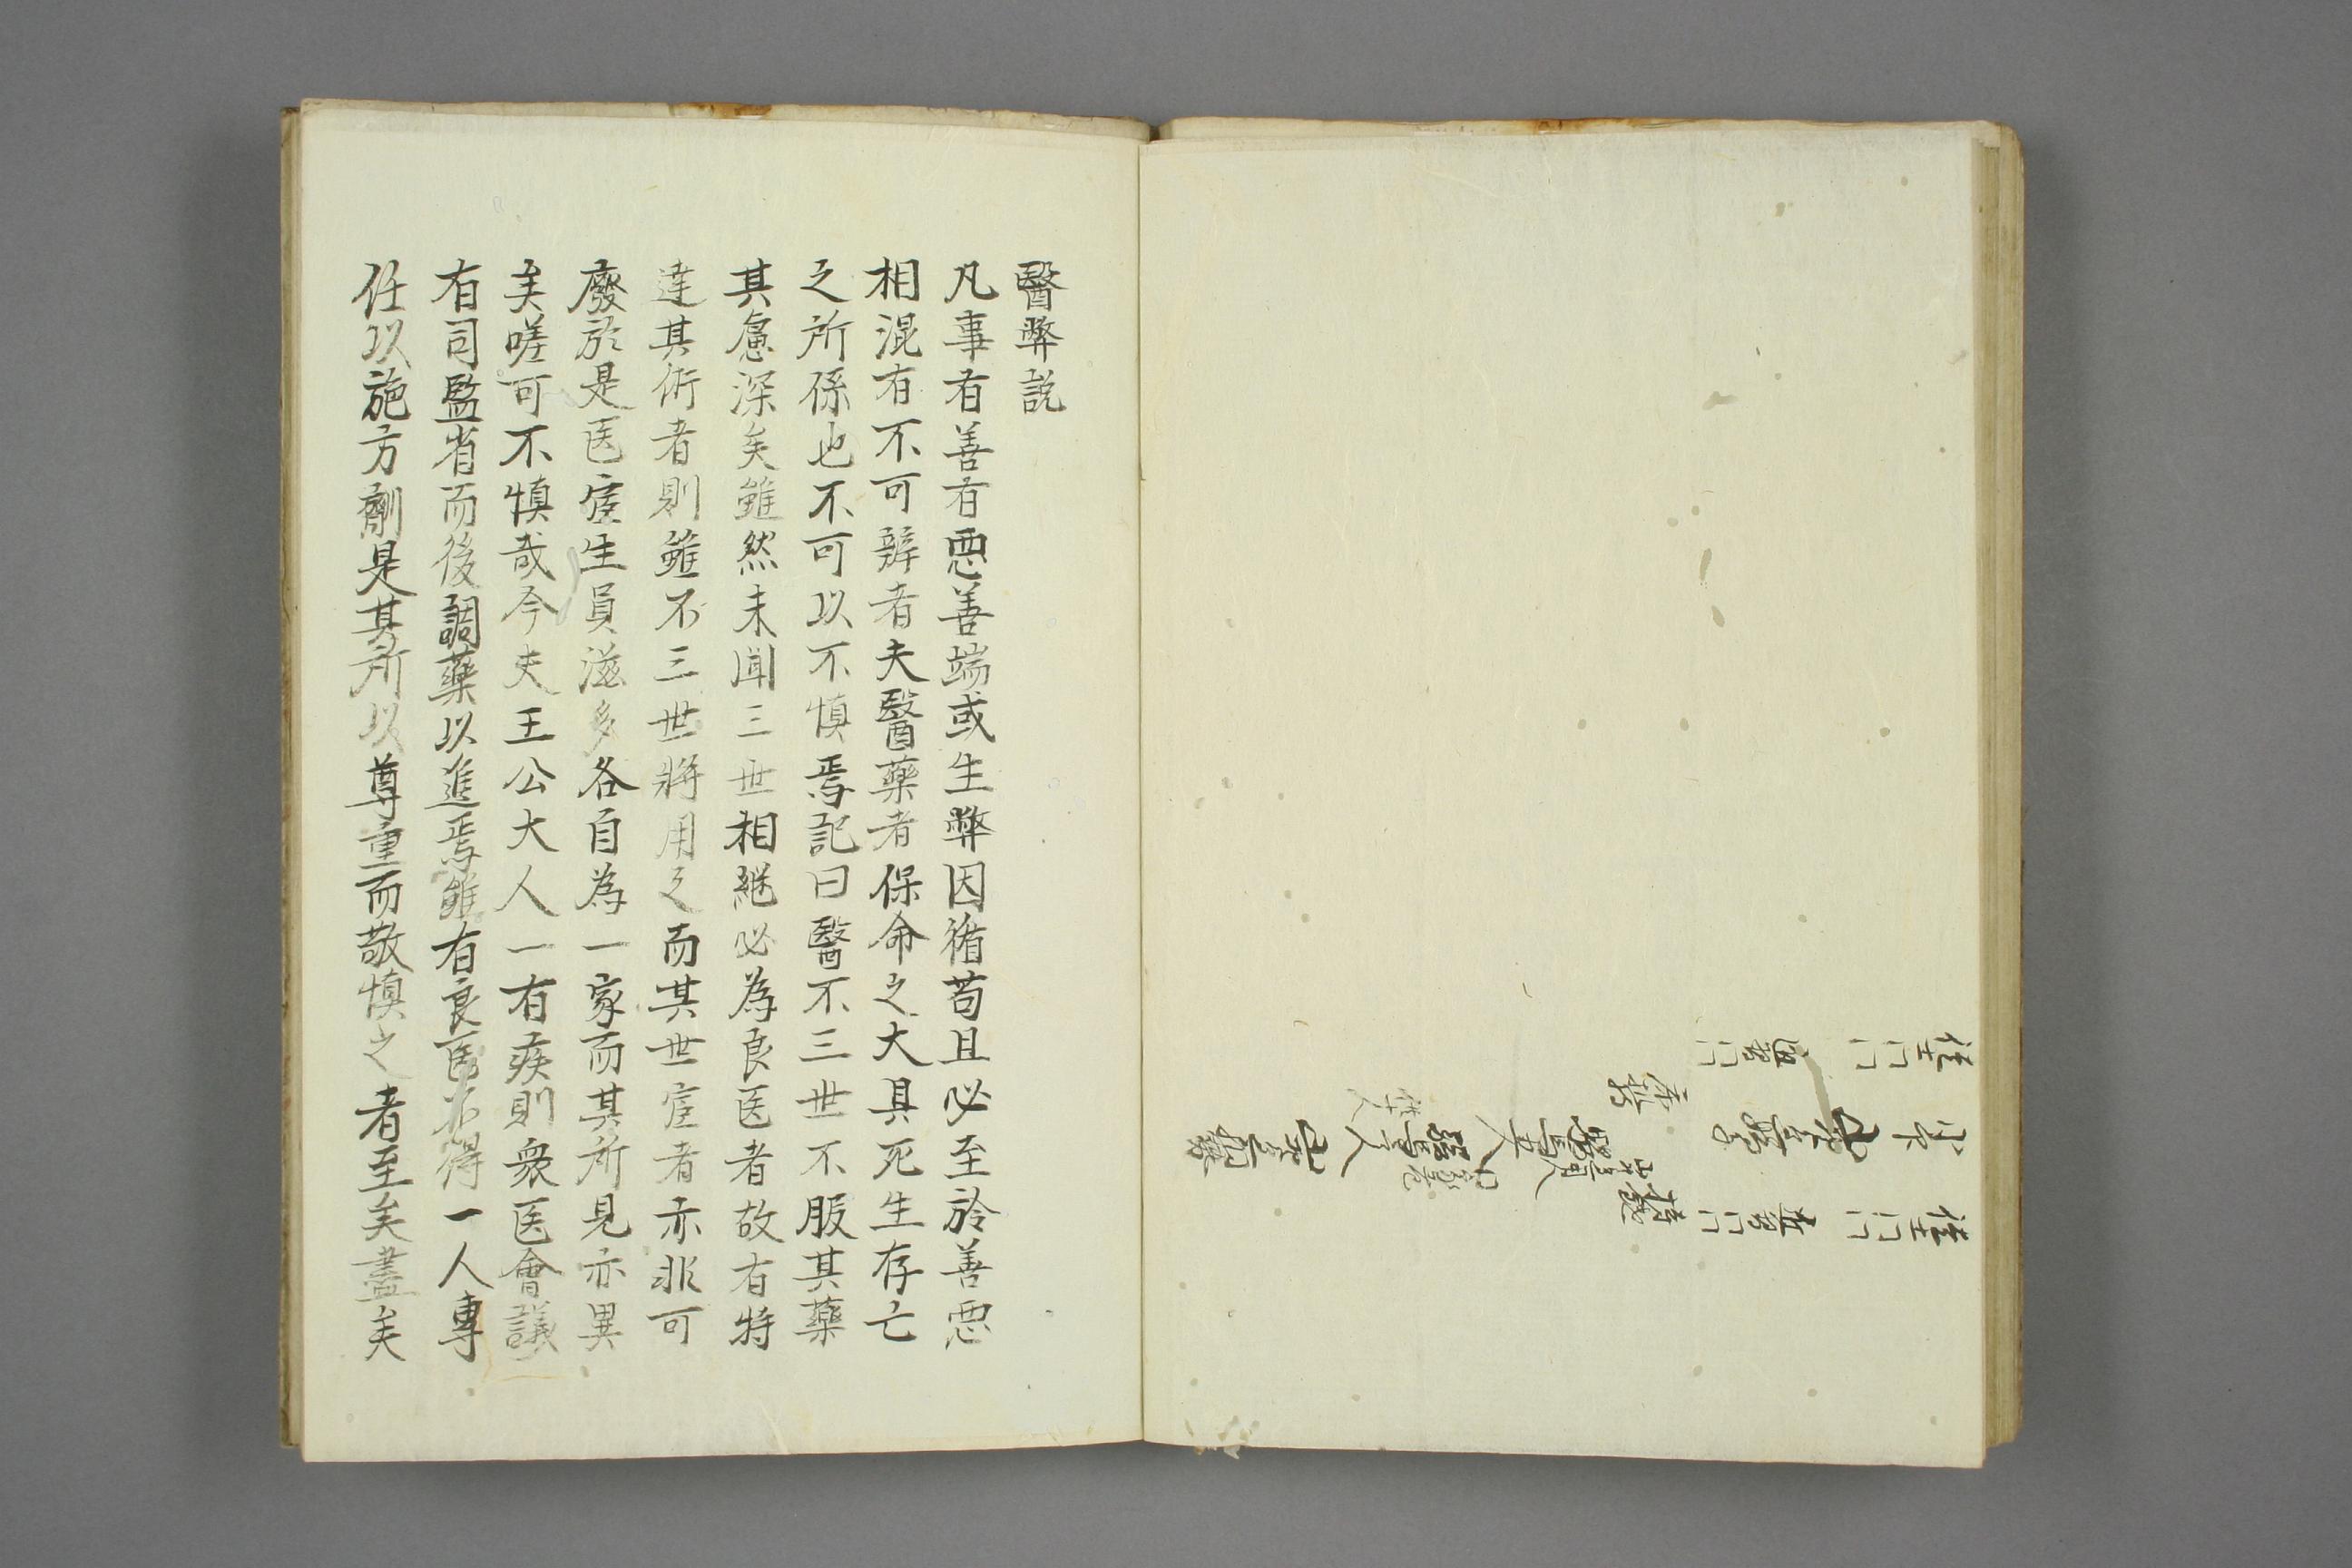 醫弊説
凡事有善有惡善端或生弊因循苟且必至於善惡
相混有不可辨者夫醫藥者保命之大具死生存亡
之所係也不可以不慎焉記曰醫不三世不服其藥
其慮深矣雖然未聞三世相継必為良医者故有特
達其術者則雖不三世將用之而其世官者亦非可
廢於是医官生員滋多各自為一家而其所見亦異
矣嗟可不慎哉今夫王公大人一有疾則衆医會議
有司監省而後調藥以進焉雖有良医不得一人專
任以施方劑是其所以尊重而敬慎之者至矣盡矣